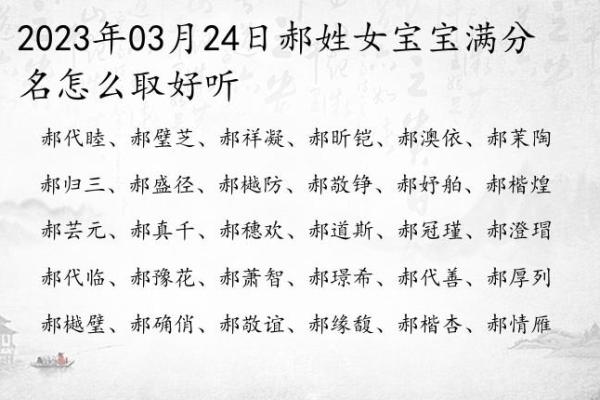 2023年03月24日郝姓女宝宝满分
名怎么取好听
郝代睦、郝璧芝、郝祥凝、郝昕铠、郝澳依、郝茉陶
郝归三、郝盛径、郝樾防、郝敬铮、郝妤舶、郝楷煌
郝芸元、郝真千、郝穗欢、郝道斯、郝冠瑾、郝澄瑁
郝代临、郝豫花、郝萧智、郝璟希、郝代善、郝厚列
郝樾璧、郝确俏、郝敬谊、郝缘馥、郝楷杏、郝情雁